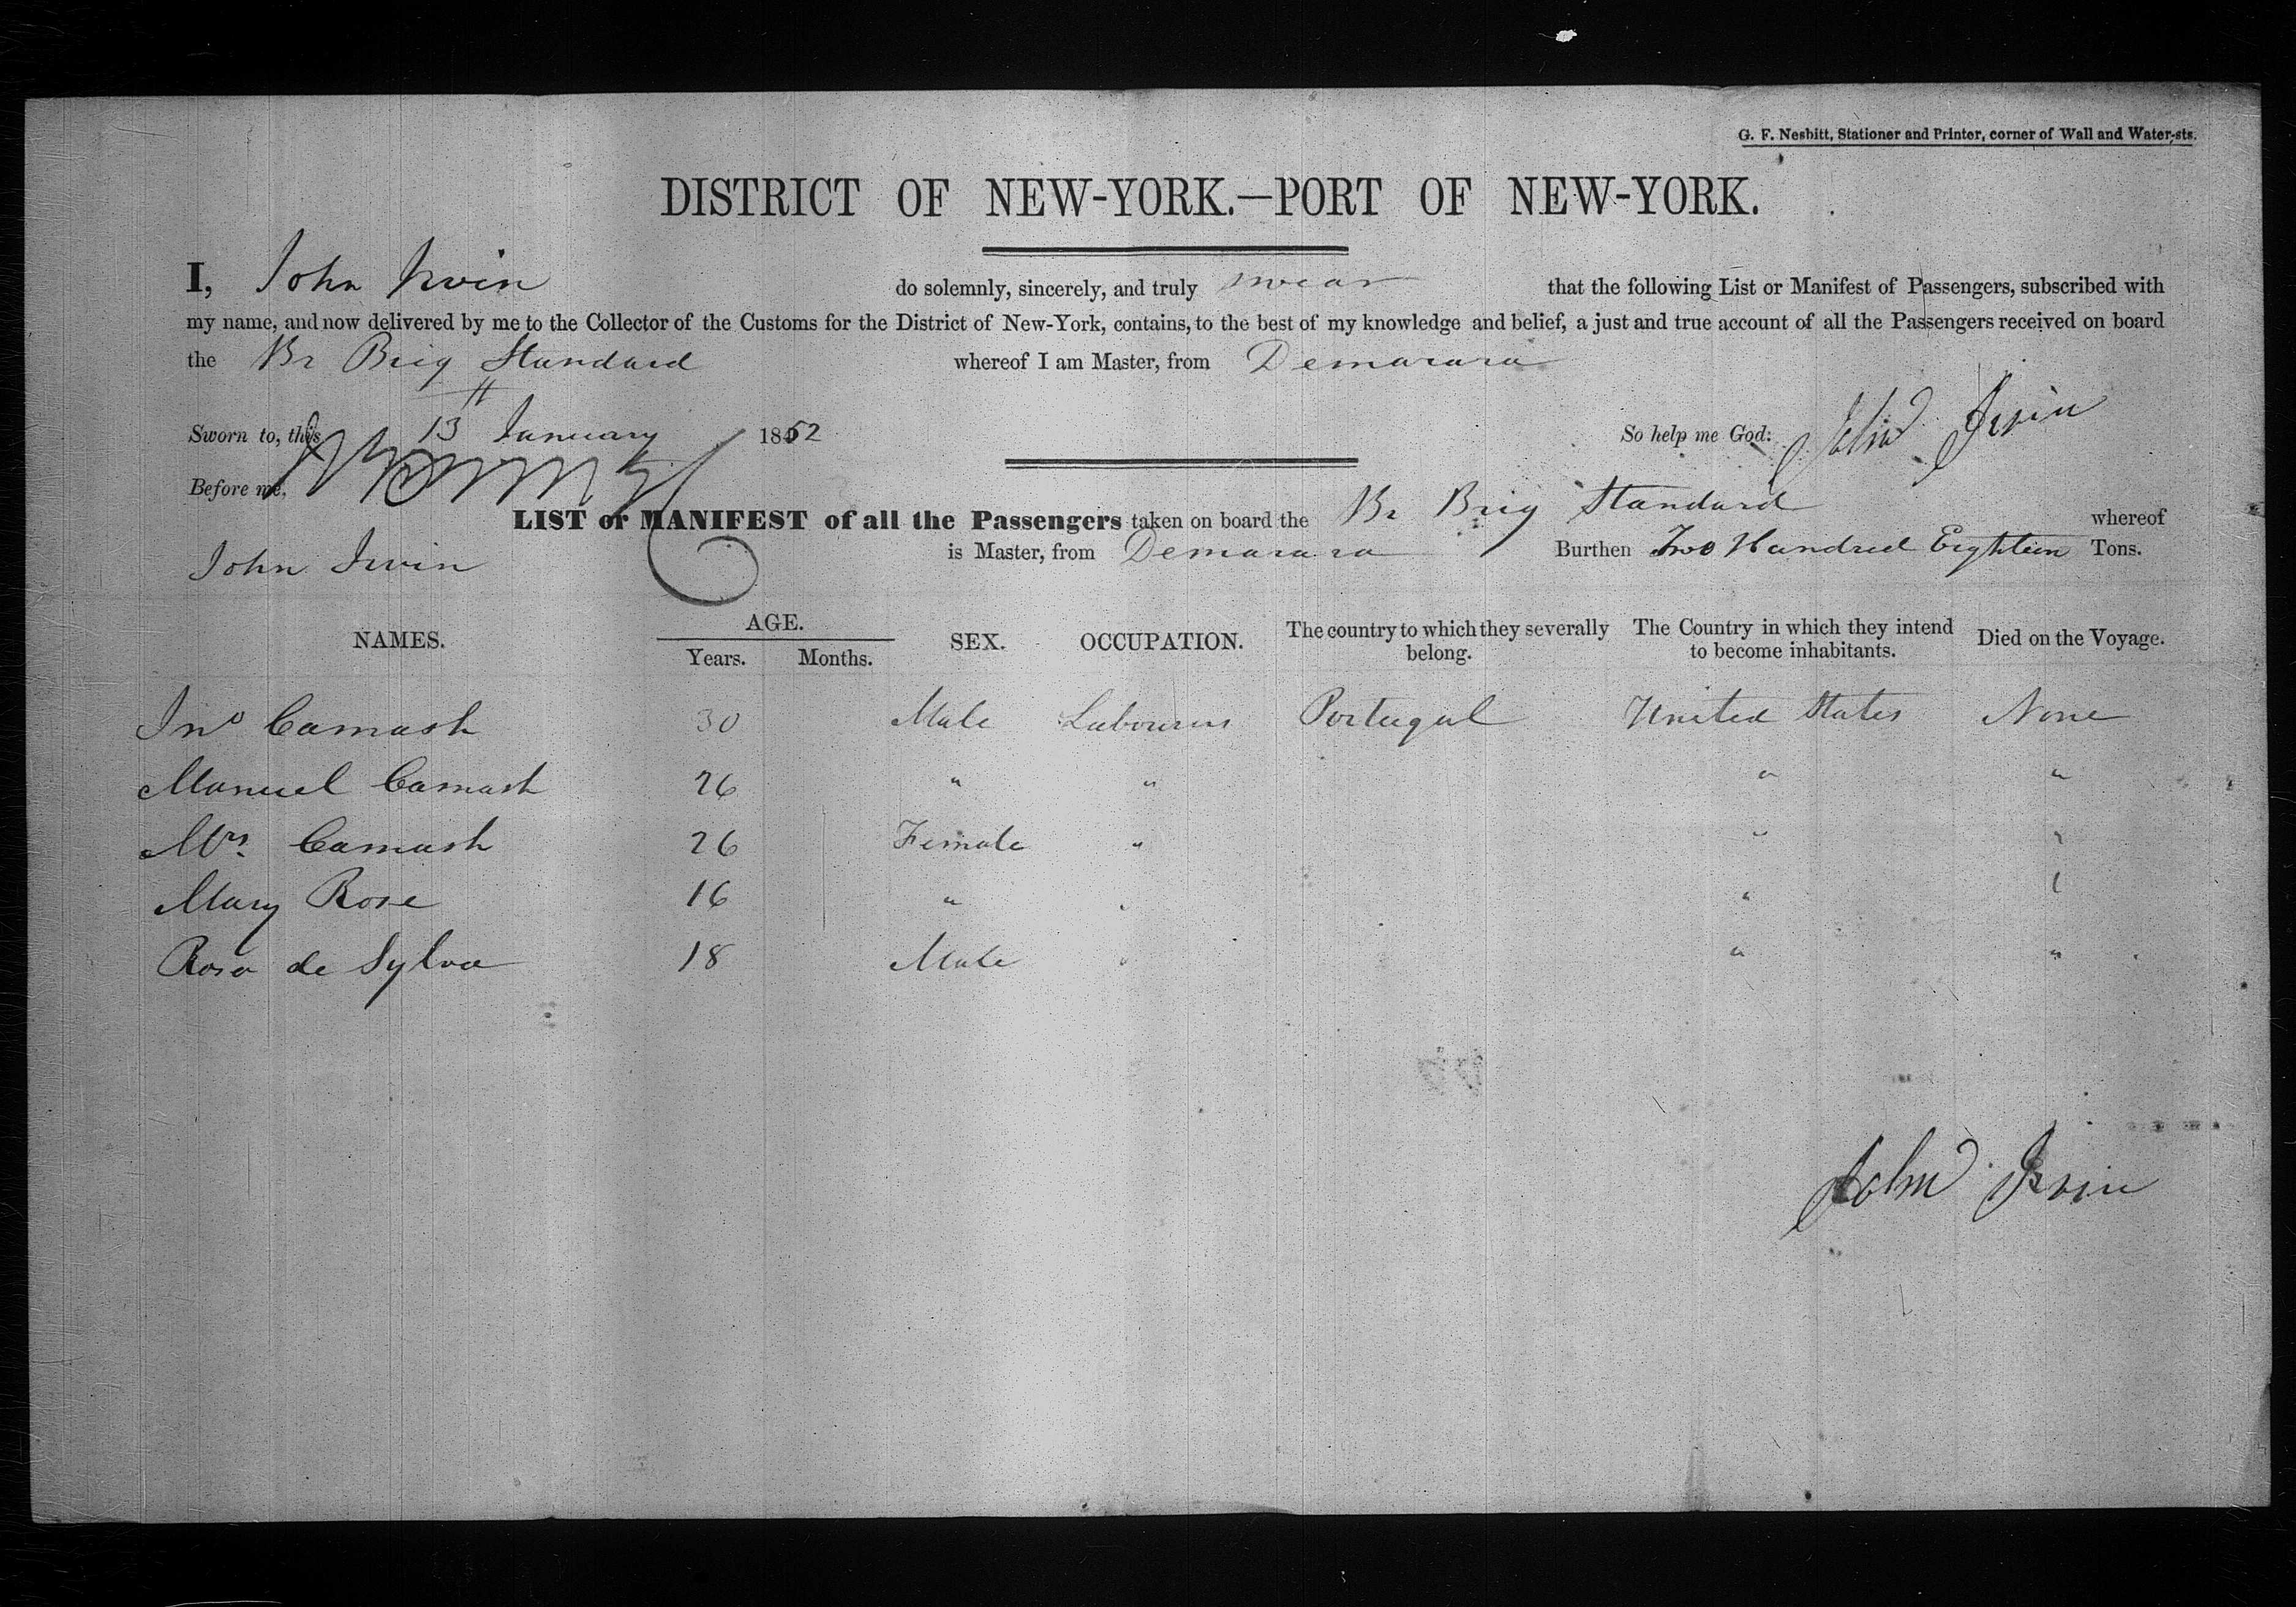 G. F. Nesbitt, Stationer and Printer, corner of Wall and Water-sts.
DISTRICT OF NEW-YORK.—PORT OF NEW-YORK.
I, John Irvin do solemnly, sincerely, and truly swear that the following List or Manifest of Passengers, subscribed with
my name, and now delivered by me to the Collector of the Customs for the District of New-York, contains, to the best of my knowledge and belief, a just and true account of all the Passengers received on board
the Br Brig Standard whereof I am Master, from Demarara
Sworn to, this 13 January 1852 So help me God: John Irvin
Before me,
LIST or MANIFEST of all the Passengers taken on board the Br Brig Standard whereof
John Irvin is Master, from Demarara Burthen Two Hundred Eighteen Tons.
NAMES. AGE. Years. Months. SEX. OCCUPATION. The country to which they severally belong. The Country in which they intend to become inhabitants. Died on the Voyage.
Jno Camash 30 Male Labourers Portugal United States None
Manuel Camash 26 " " " "
Mrs. Camash 26 Female " " "
Mary Rose 16 " " " "
Rosa de Sylva 18 Male " " "
John Irvin